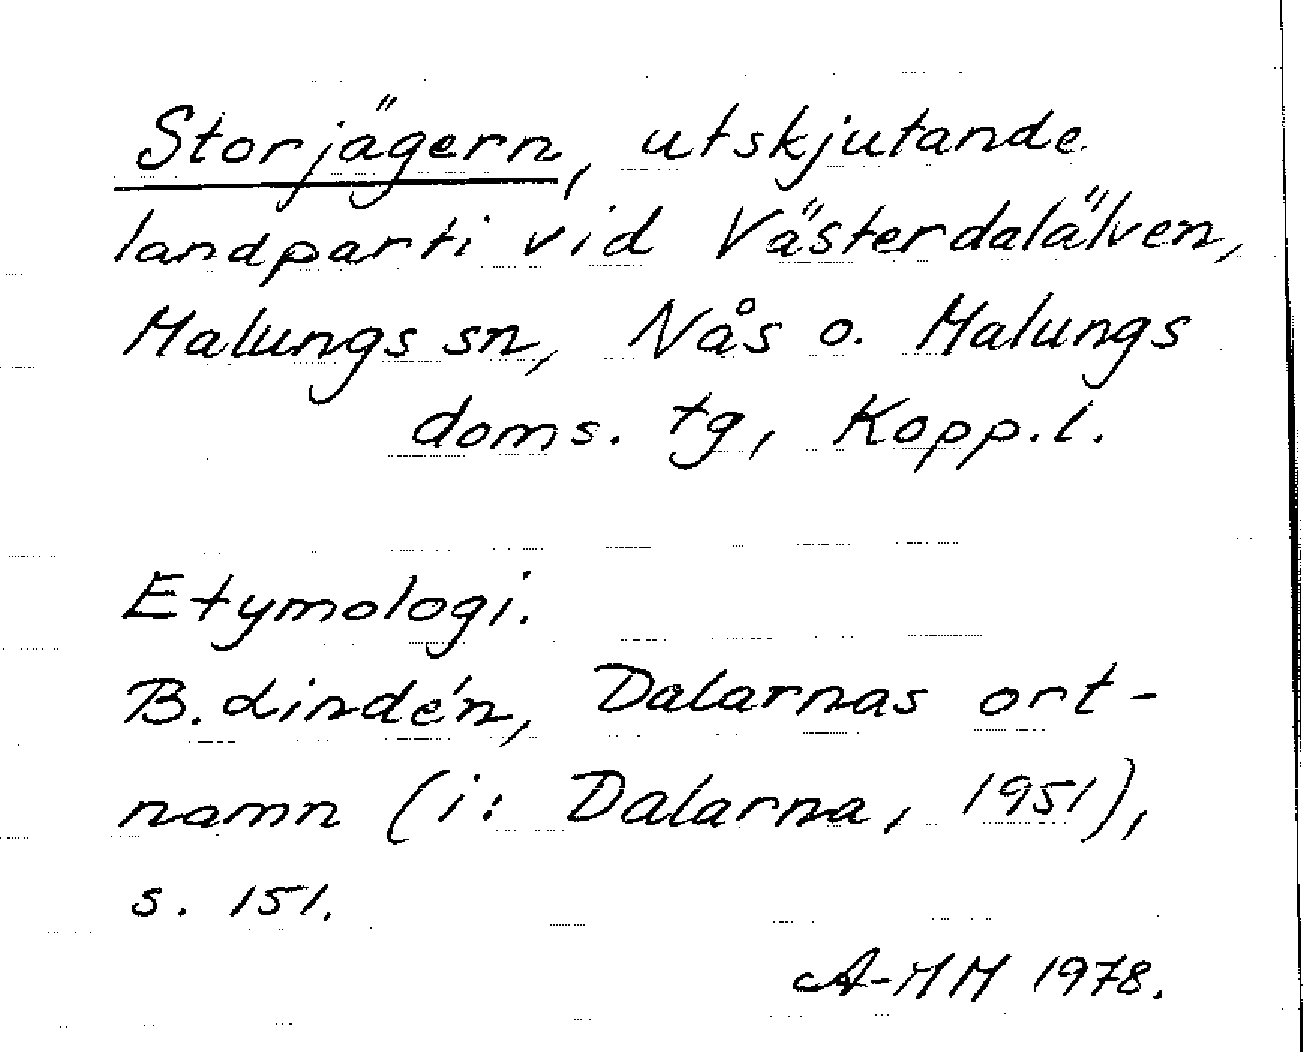 Storjägern, utskjutande
landparti vid Västerdalälven,
Malungs sn, Nås o. Malungs
doms. tg, Kopp.l.
Etymologi.
B. Lindén, Dalarnas ort-
namn (i: Dalarna, 1951),
s. 151.
A-MM 1978.